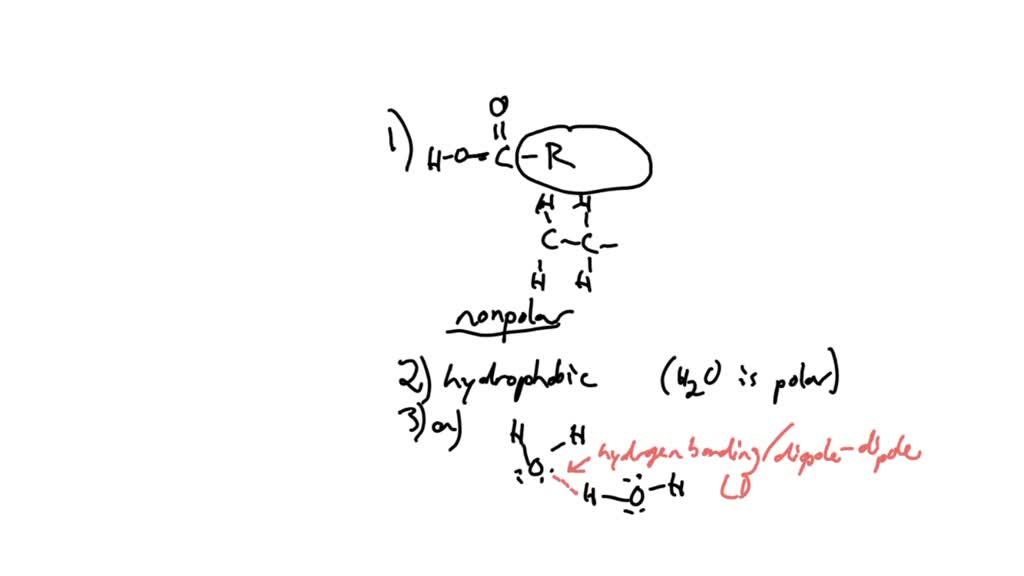 O
1) H-O-C-R
H H
C-C-
H H
nonpolar
2) hydrophobic (H₂O is polar)
3) a)
H H hydrogen bonding/dipole-dipole
O H-O-H LD